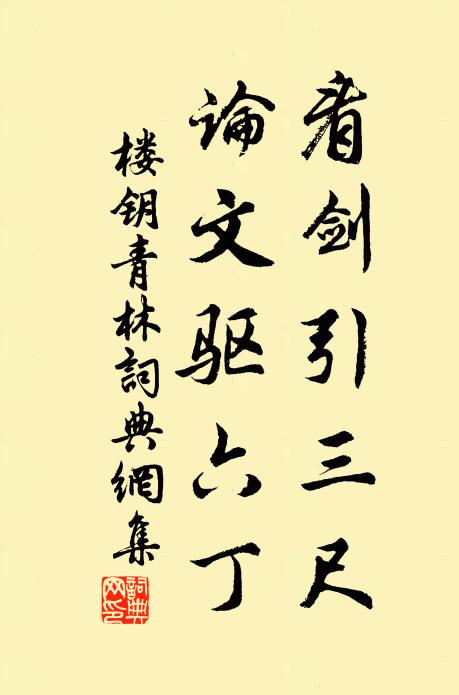 看剑引三尺
論文驱六丁
楼钥青林詞典網集
詞典網印